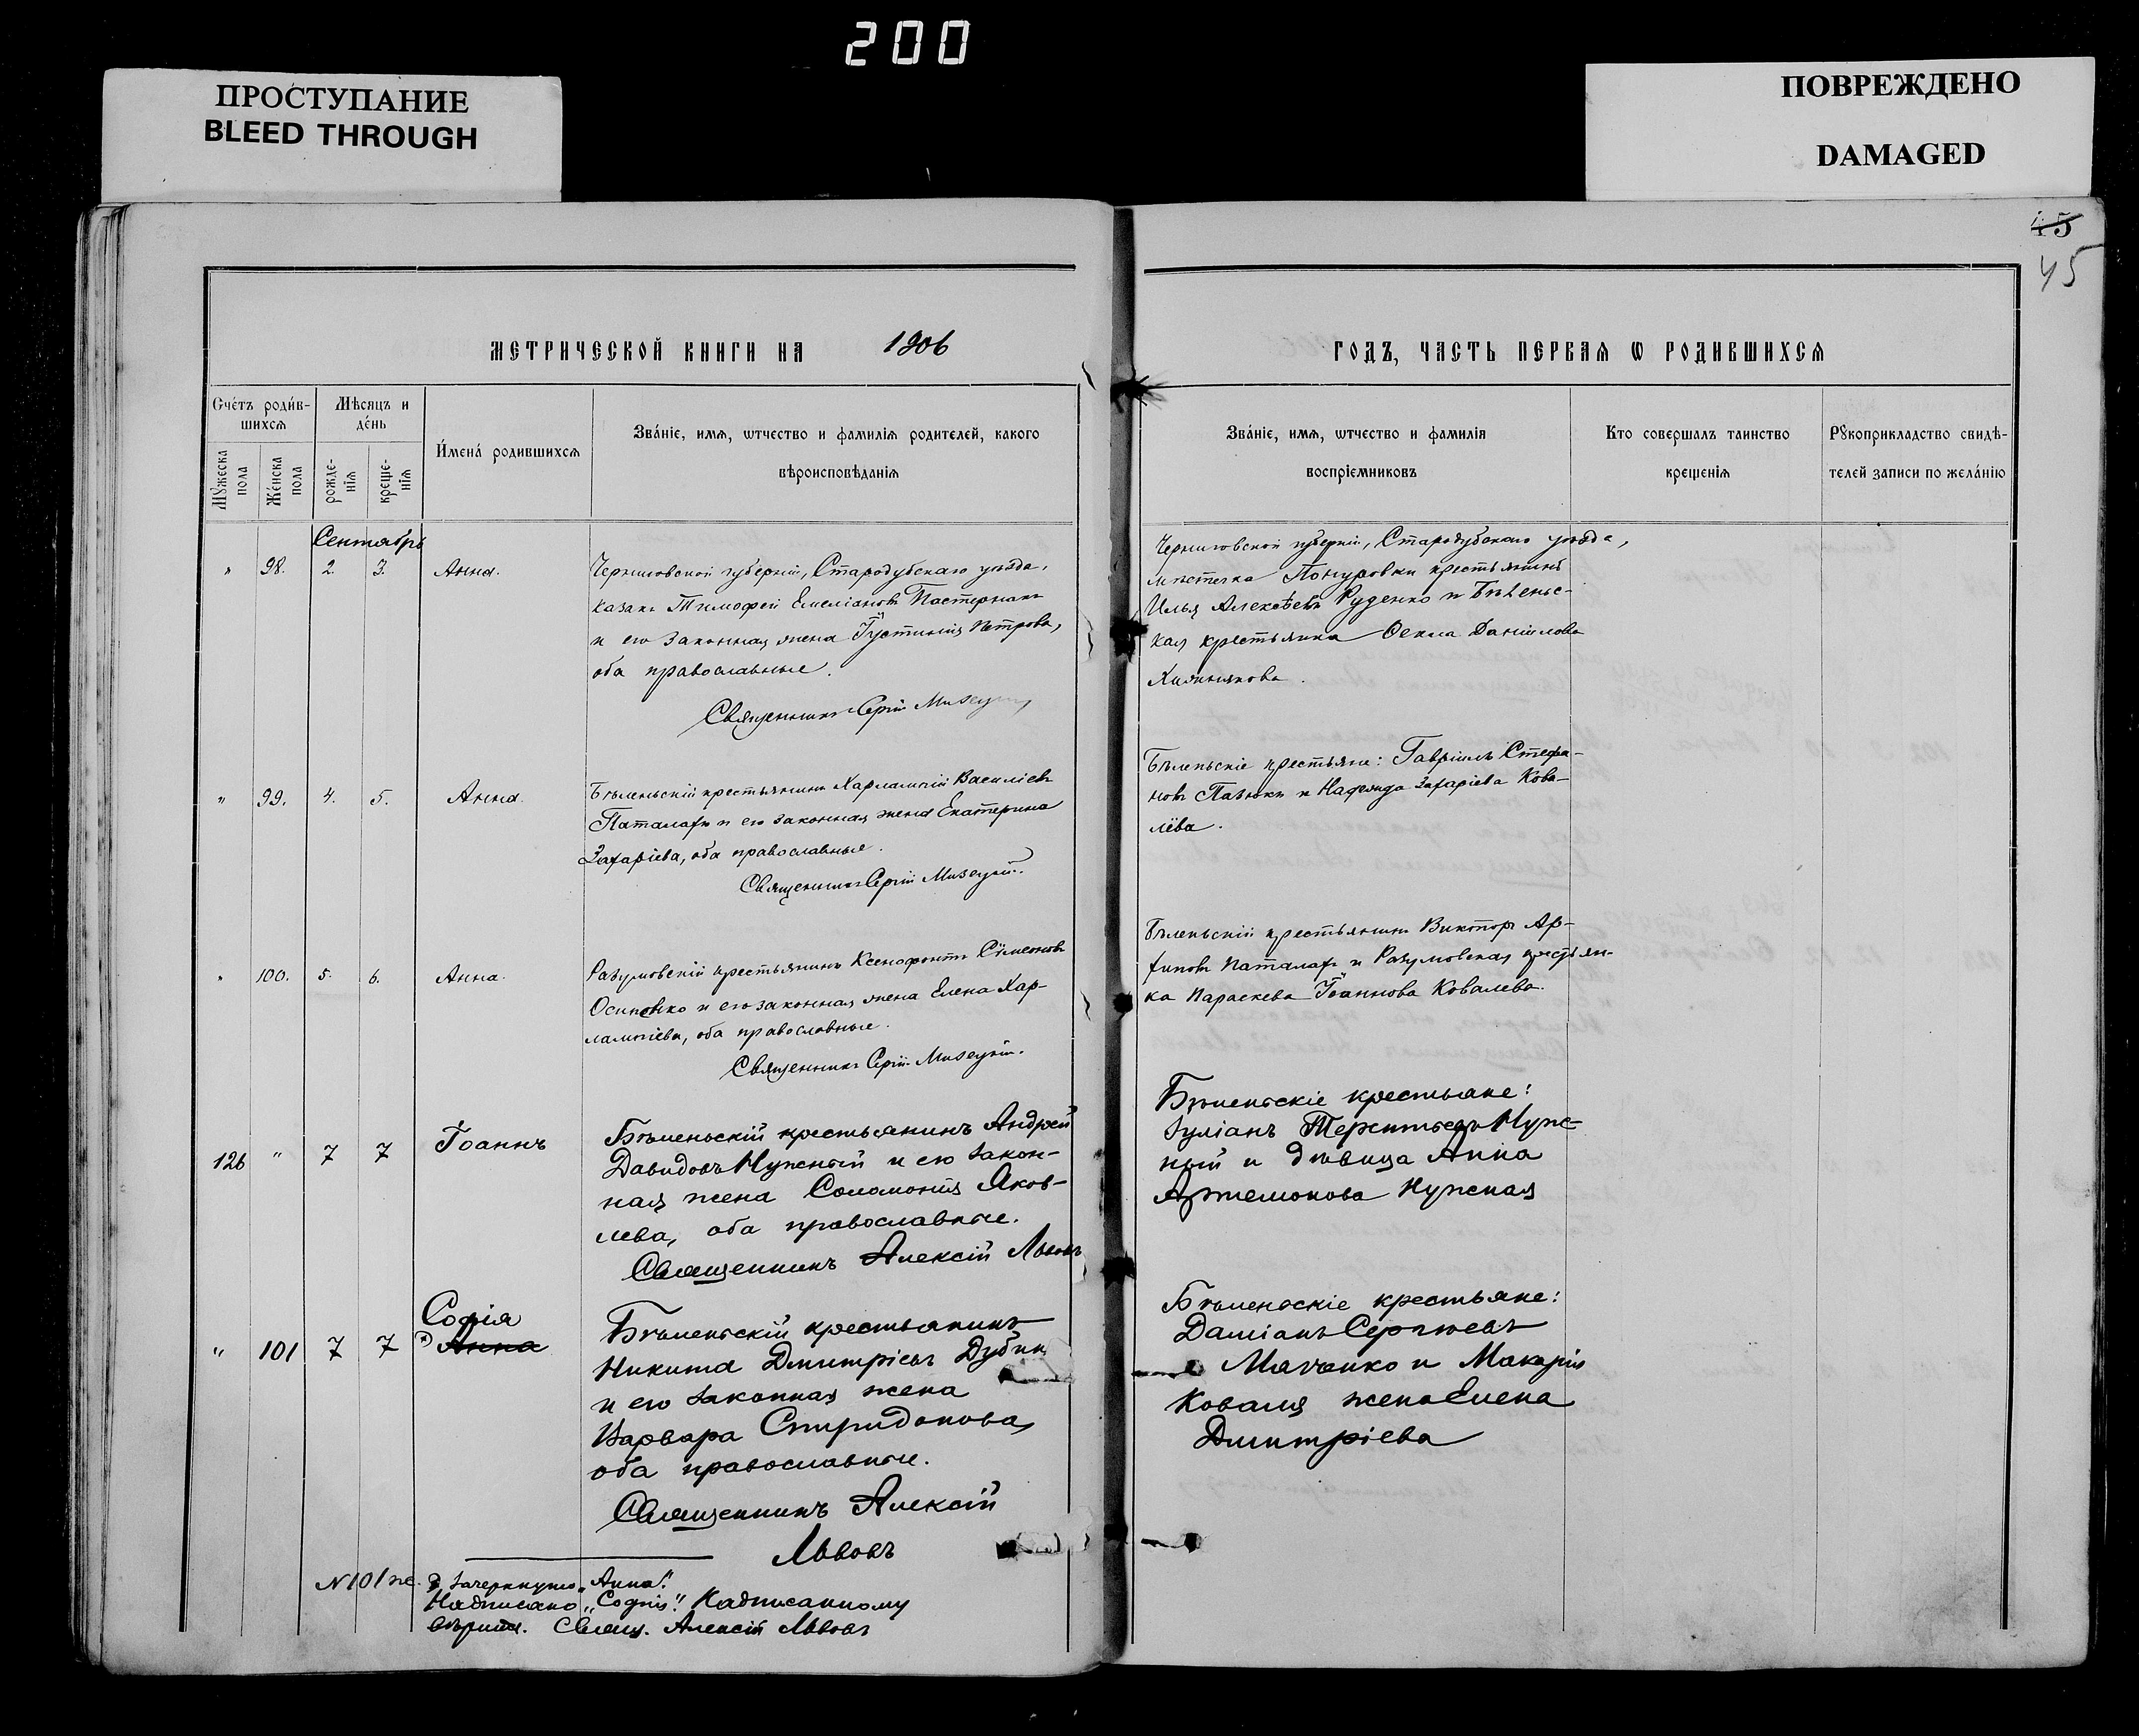 200
ПРОСТУПАНИЕ
BLEED THROUGH
ПОВРЕЖДЕНО
DAMAGED
45
45
МЕТРИЧЕСКОЙ КНИГИ НА 1906
ГОДЪ, ЧАСТЬ ПЕРВАѦ Ѡ РОДИВШИХСѦ
Счетъ родив-
шихсѧ
Мꙋжеска
пола
Женска
пола
Мѣсяцъ и
день
рожде-
нїѧ
креще-
нїѧ
Имена родившихсѧ
Званїе, имѧ, ѡтчество и фамилїѧ родителей, какого
вѣроисповѣданїѧ
Званїе, имѧ, ѡтчество и фамилїѧ
воспрїемниковъ
Кто совершалъ таинство
крещенїѧ
Рꙋкоприкладство свидѣ-
телей записи по желанїю
Сентябрь
" 98. 2. 3. Анна.
Черниговской губерніи, Стародубскаго уѣзда,
казакъ Тимофей Емеліановъ Пастернакъ
и его законная жена Іустинія Петрова,
оба православные.
Священникъ Сергій
Черниговской губерніи, Стародубскаго уѣзда,
мѣстечка Понуровки крестьянинъ
Илья Алексѣевъ Руденко и Бѣленьс-
кая крестьянка Ѳекла Даніилова
" 99. 4. 5. Анна.
Бѣленьскій крестьянинъ Харлампій Василіевъ
Паталахъ и его законная жена Екатерина
Захаріева, оба православные.
Священникъ Сергій
Бѣленьскіе крестьяне: Гавріилъ Стефа-
новъ Павлюкъ и Надежда Захаріева Кова-
лёва.
" 100. 5. 6. Анна.
Разумовскій крестьянинъ Ксенофонтъ Сѵмеоновъ
Осипенко и его законная жена Елена Хар-
лампіева, оба православные.
Священникъ Сергій
Бѣленьскій крестьянинъ Викторъ Ар-
хиповъ Паталахъ и Разумовская крестьян-
ка Параскева Іоаннова Ковалева.
126 " 7 7 Іоаннъ
Бѣленьскій крестьянинъ Андрей
Давидовъ Нужный и его закон-
ная жена Соломонія Яков-
лева, оба православные.
Священникъ Алексій Львовъ
Бѣленьскіе крестьяне:
Іуліанъ Терентьевъ Нуж-
ный и дѣвица Анна
Артемонова Нужная
София
" 101 7 7 *) Анна
Бѣленьскій крестьянинъ
Никита Дмитріевъ
и его законная жена
Варвара Спиридонова,
оба православные.
Священникъ Алексій
Львовъ
Бѣленьскіе крестьяне:
Даміанъ Сергѣевъ
и Макарія
Коваля жена Елена
Дмитріева
N 101 ж. зачеркнуто „Анна".
Надписано „Софія". Надписанному
вѣрить. Свящ. Алексій Львовъ